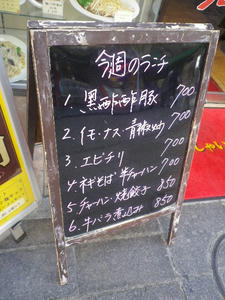 今週のランチ
1. 黒酢酢豚 700
2. イモ・ナス・青椒炒め 700
3. エビチリ 700
4. ネギそば 半チャーハン 700
5. チャーハン・焼餃子 850
6. 牛バラ煮込み 850